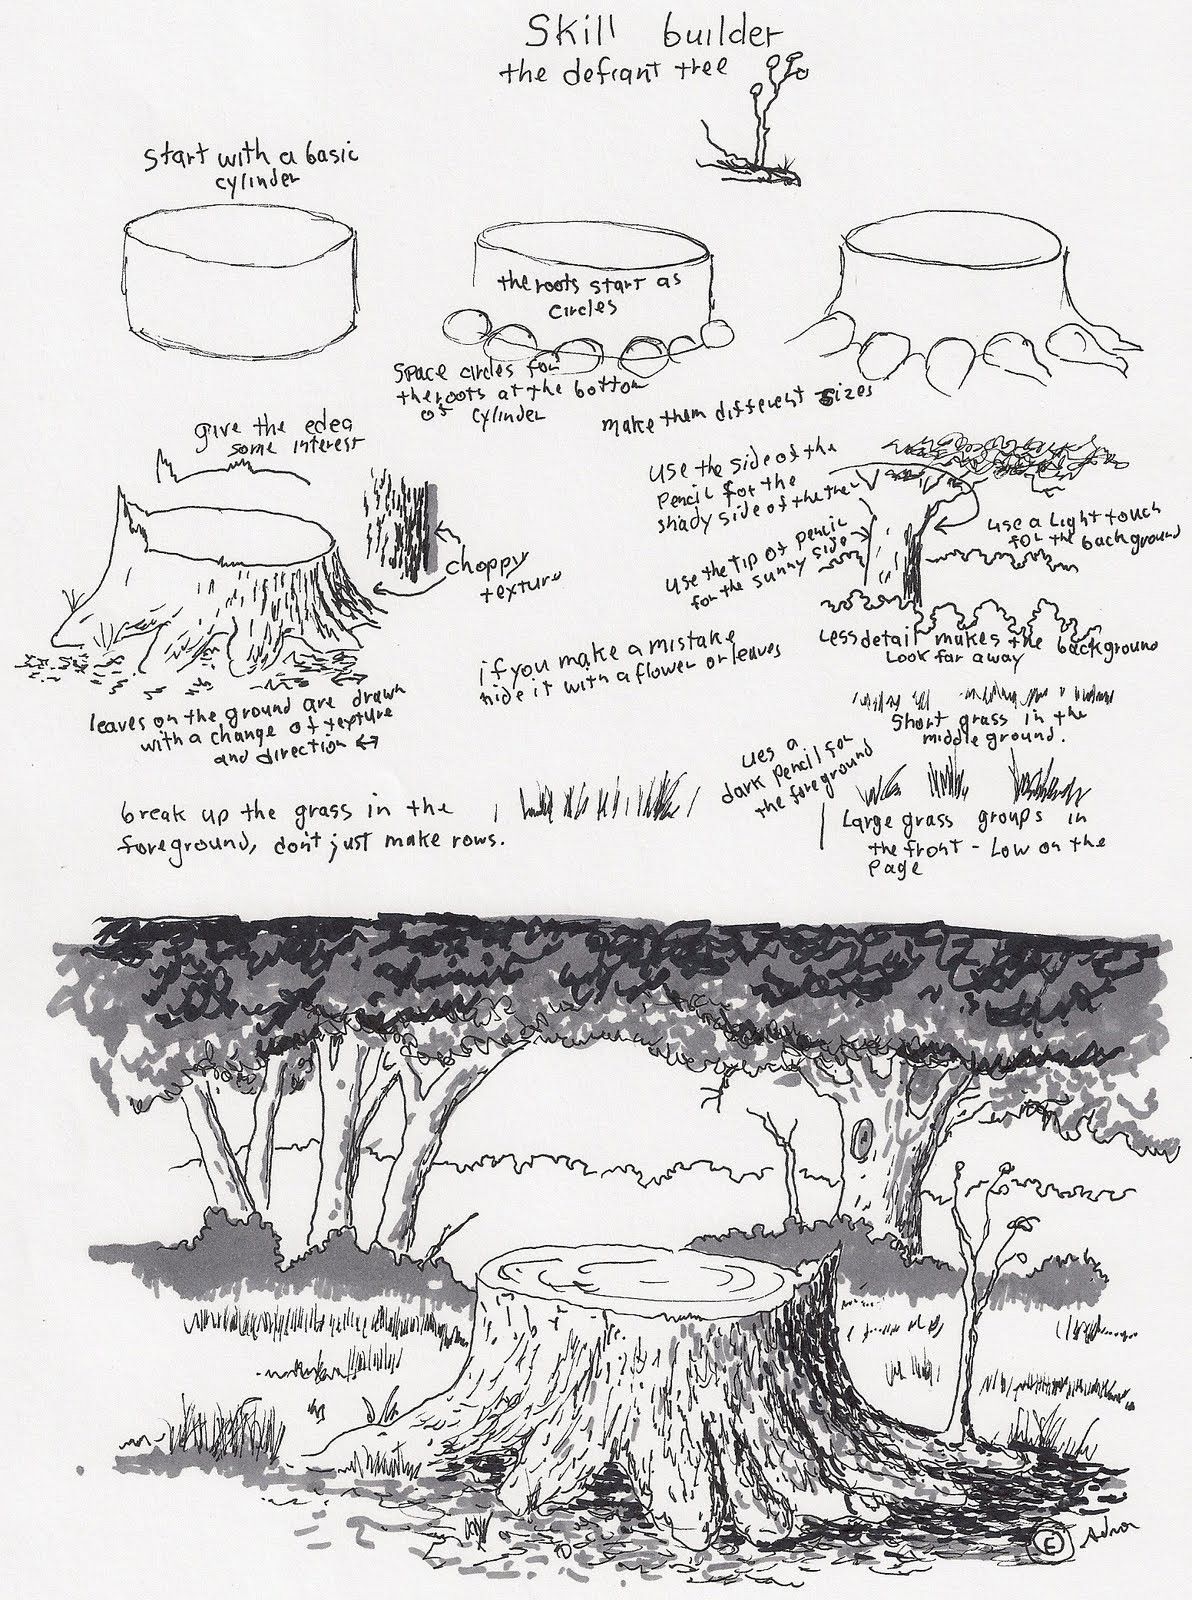 Skill builder
the defiant tree
Start with a basic
cylinder
the roots start as
circles
Space circles for
the roots at the bottom
of cylinder
make them different sizes
give the edea
some interest
choppy
texture
leaves on the ground are drawn
with a change of texture
and direction
use the side of the
pencil for the
shady side of the tree
use the tip of pencil
for the sunny side
use a light touch
for the background
Less detail makes the background
Look far away
if you make a mistake
hide it with a flower or leaves
Short grass in the
middle ground.
break up the grass in the
foreground, don't just make rows.
ues a
dark pencil for
the foreground
Large grass groups in
the front - Low on the
page
©